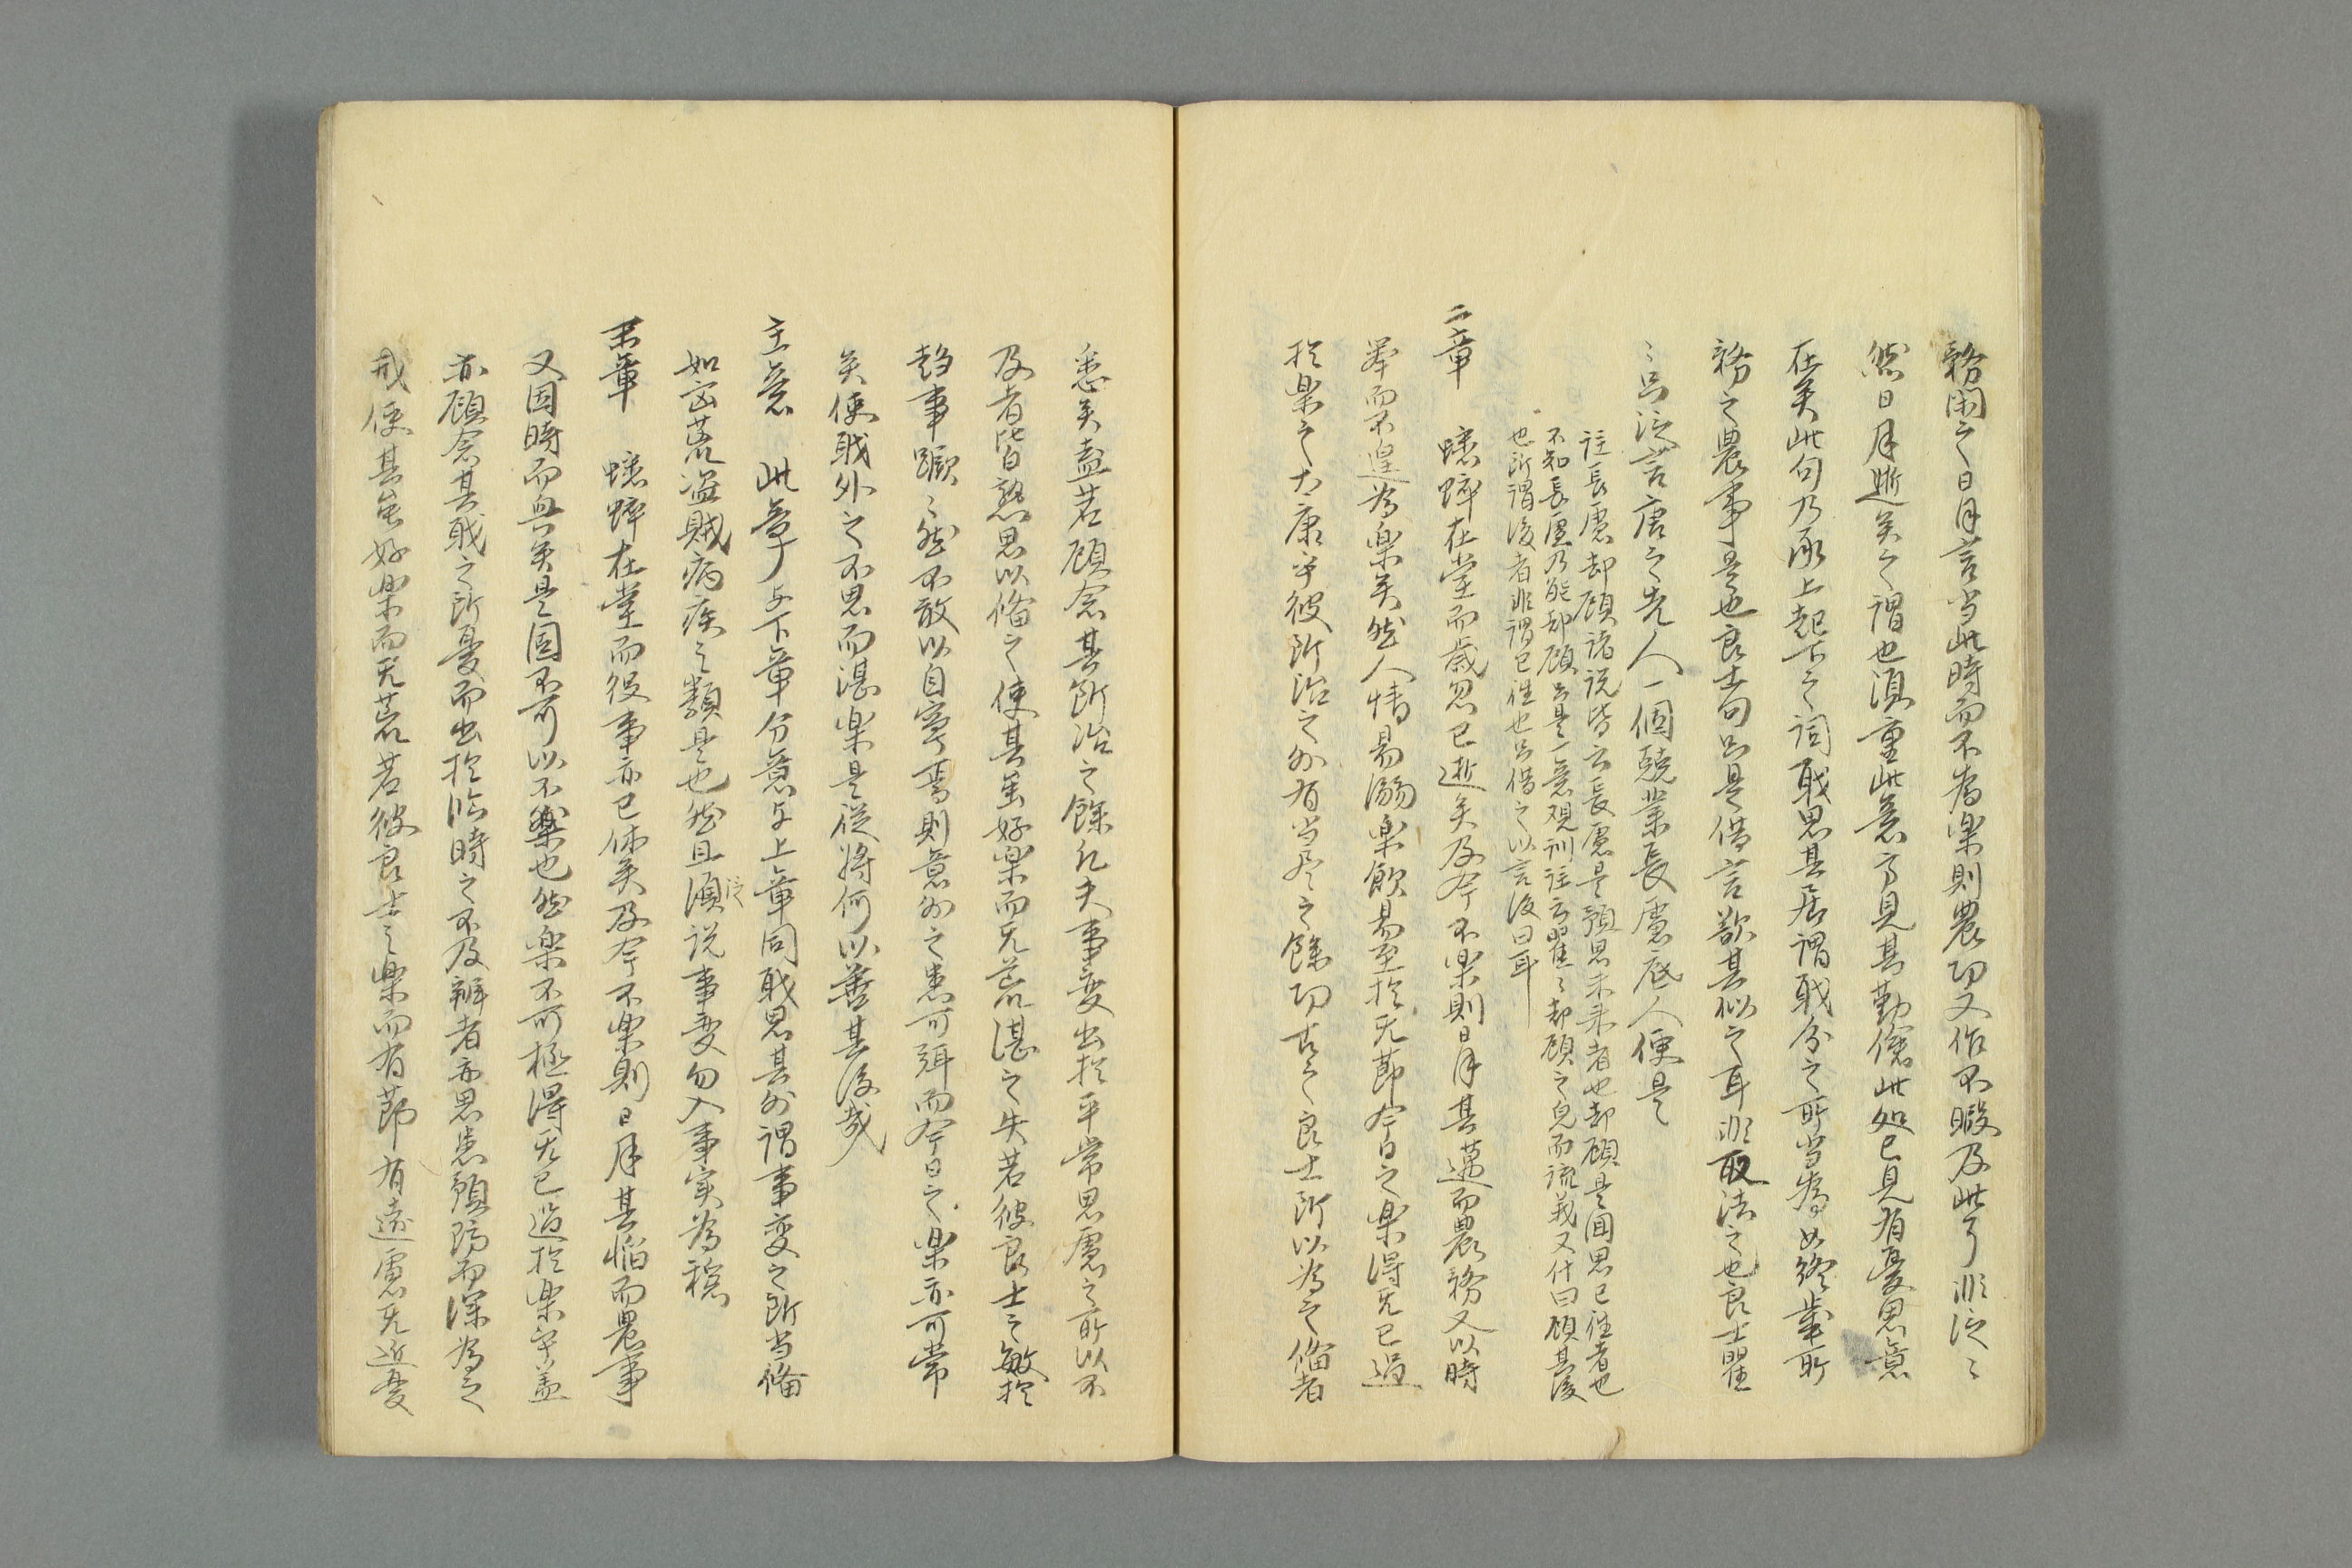 務閑之日月言当此時而不為楽則農功又作不暇及此了非泛〻
然日月逝矣之謂也須重此意方見其勤儉此処已見有憂思意
在矣此句乃承上起下之詞職思其居謂職分之所当為如終歳所
務之農事是也良士句只是借言欲其似之耳非取法之也良士瞿
〻只泛言唐之先人一個兢業長慮底人便是
註長慮却顧諸説皆云長慮是預思未来者也却顧是回思已往者也
不知長慮乃能却顧只是一意観訓註云瞿〻却顧之皃而流義又什曰顧其後
也所謂後者非謂已往也只借之以言後日耳
二章　蟋蟀在堂而歳忽已逝矣及今不楽則日月其邁而農務又以時
挙而不遑為楽矣然人情易溺楽飲易至於无節今日之楽得无已過
於楽之大康乎彼所治之外有当尽之餘功甚之良士所以為之備者
悉矣盍若顧念其所治之餘凡夫事変出於平常思慮之所以不
及者皆熟思以備之使其虽好楽而无荒湛之失若彼良士之敏於
趋事蹶〻然不敢以自寧焉則意外之患可弭而今日之楽亦可常
矣使職外之不思而湛楽是從将何以善其後哉
主意　此章与下章分意与上章同職思其外謂事変之所当備
如凶荒盗賊病疾之類是也然且須泛説事変勿入事実為穏
末章　蟋蟀在堂而役事亦已休矣及今不楽則日月其慆而農事
又因時而興矣是固不可以不楽也然楽不可極得无已過於楽乎盖
亦顧念其職之所憂而出於臨時之不及辦者亦思患預防而深為之
戒使其虽好楽而无荒若彼良士之楽而有節有遠慮无近憂